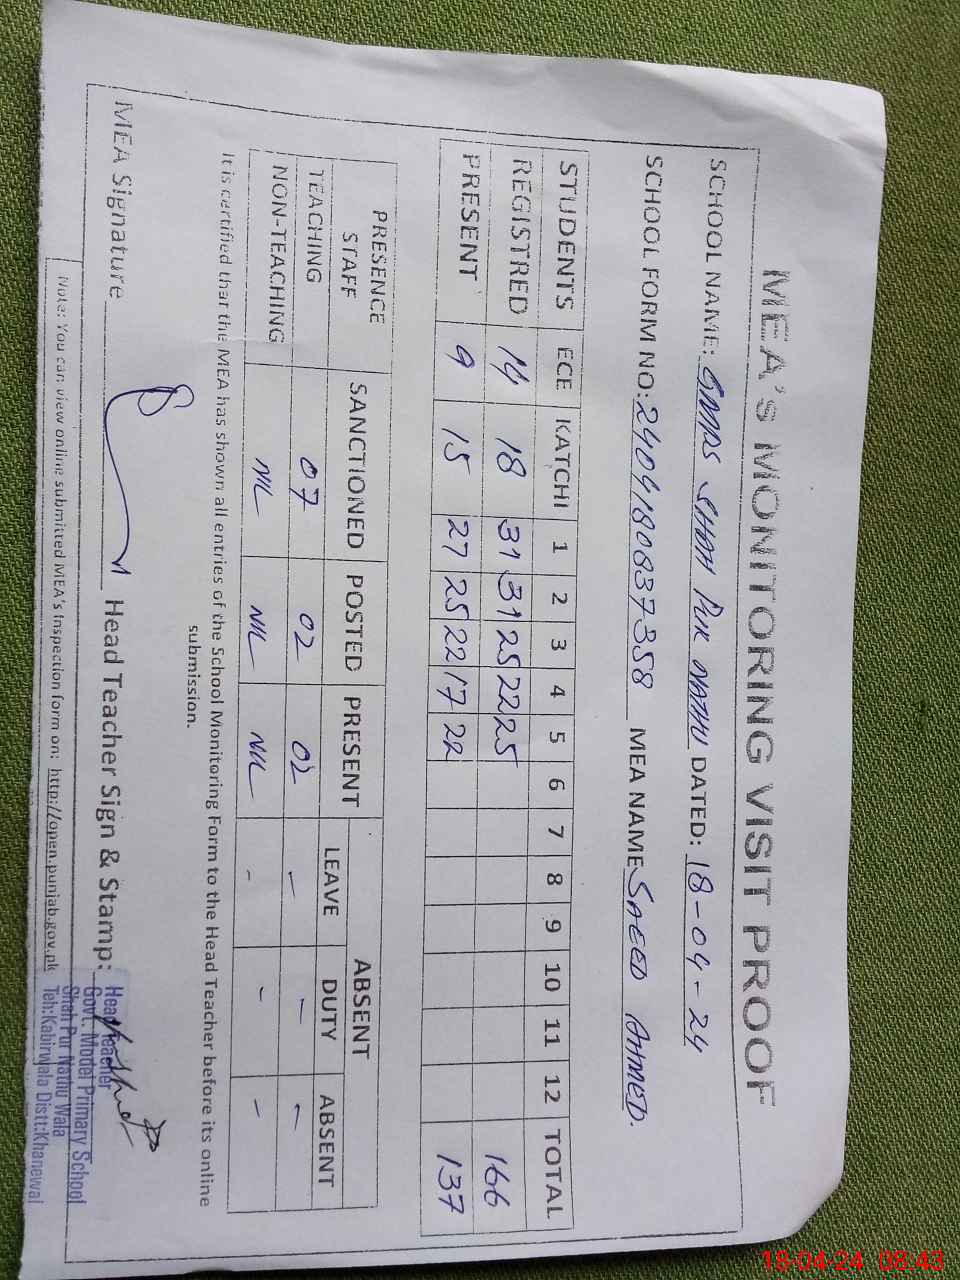 MEA'S MONITORING VISIT PROOF
SCHOOL NAME: GMPS SHAH PUR NATHU DATED: 18-04-24
SCHOOL FORM NO: 2404180837358 MEA NAME SAEED AHMED.
STUDENTS ECE KATCHI 1 2 3 4 5 6 7 8 9 10 11 12 TOTAL
REGISTRED 14 18 31 31 25 22 25 166
PRESENT 9 15 27 25 22 17 22 137
PRESENCE STAFF SANCTIONED POSTED PRESENT ABSENT
LEAVE DUTY ABSENT
TEACHING 07 02 02 - - -
NON-TEACHING NIL NIL NIL - - -
It is certified that the MEA has shown all entries of the School Monitoring Form to the Head Teacher before its online
submission.
MEA Signature Head Teacher Sign & Stamp:
Head Teacher
Govt. Model Primary School
Shah Pur Nathu Wala
Teh:Kabirwala Distt:Khanewal
Note: You can view online submitted MEA's Inspection form on: http://open.punjab.gov.pk
18-04-24 08:43